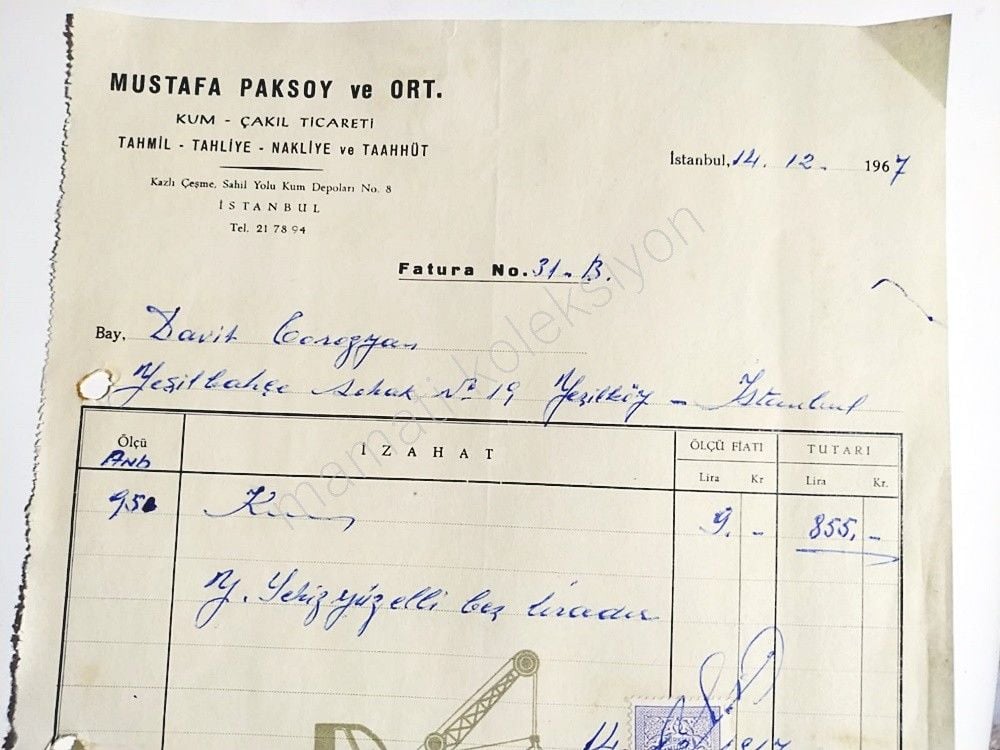 MUSTAFA PAKSOY ve ORT.
KUM - ÇAKIL TİCARETİ
TAHMİL - TAHLİYE - NAKLİYE ve TAAHHÜT
Kazlı Çeşme, Sahil Yolu Kum Depoları No. 8
İSTANBUL
Tel. 21 78 94
İstanbul, 14. 12. 1967
Fatura No. 31-B.
Bay, Davit Corogyan
Yeşilbahçe sokak No 19 Yeşilköy - İstanbul
Ölçü İZAHAT ÖLÇÜ FİATI TUTARI
Lira Kr Lira Kr.
Kum 9. - 855. -
Y. Sekizyüzelli beş liradır
14
mamati koleksiyon